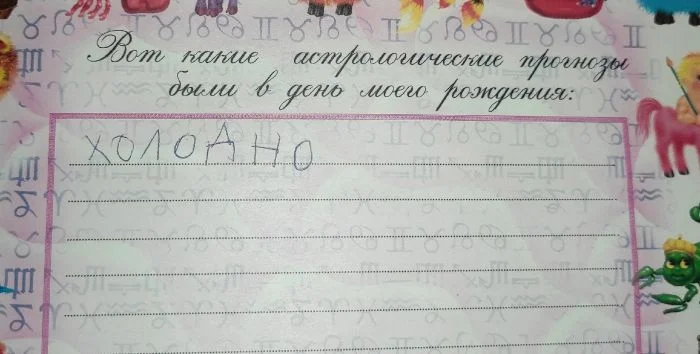 Вот какие астрологические прогнозы
были в день моего рождения:
ХОЛОДНО